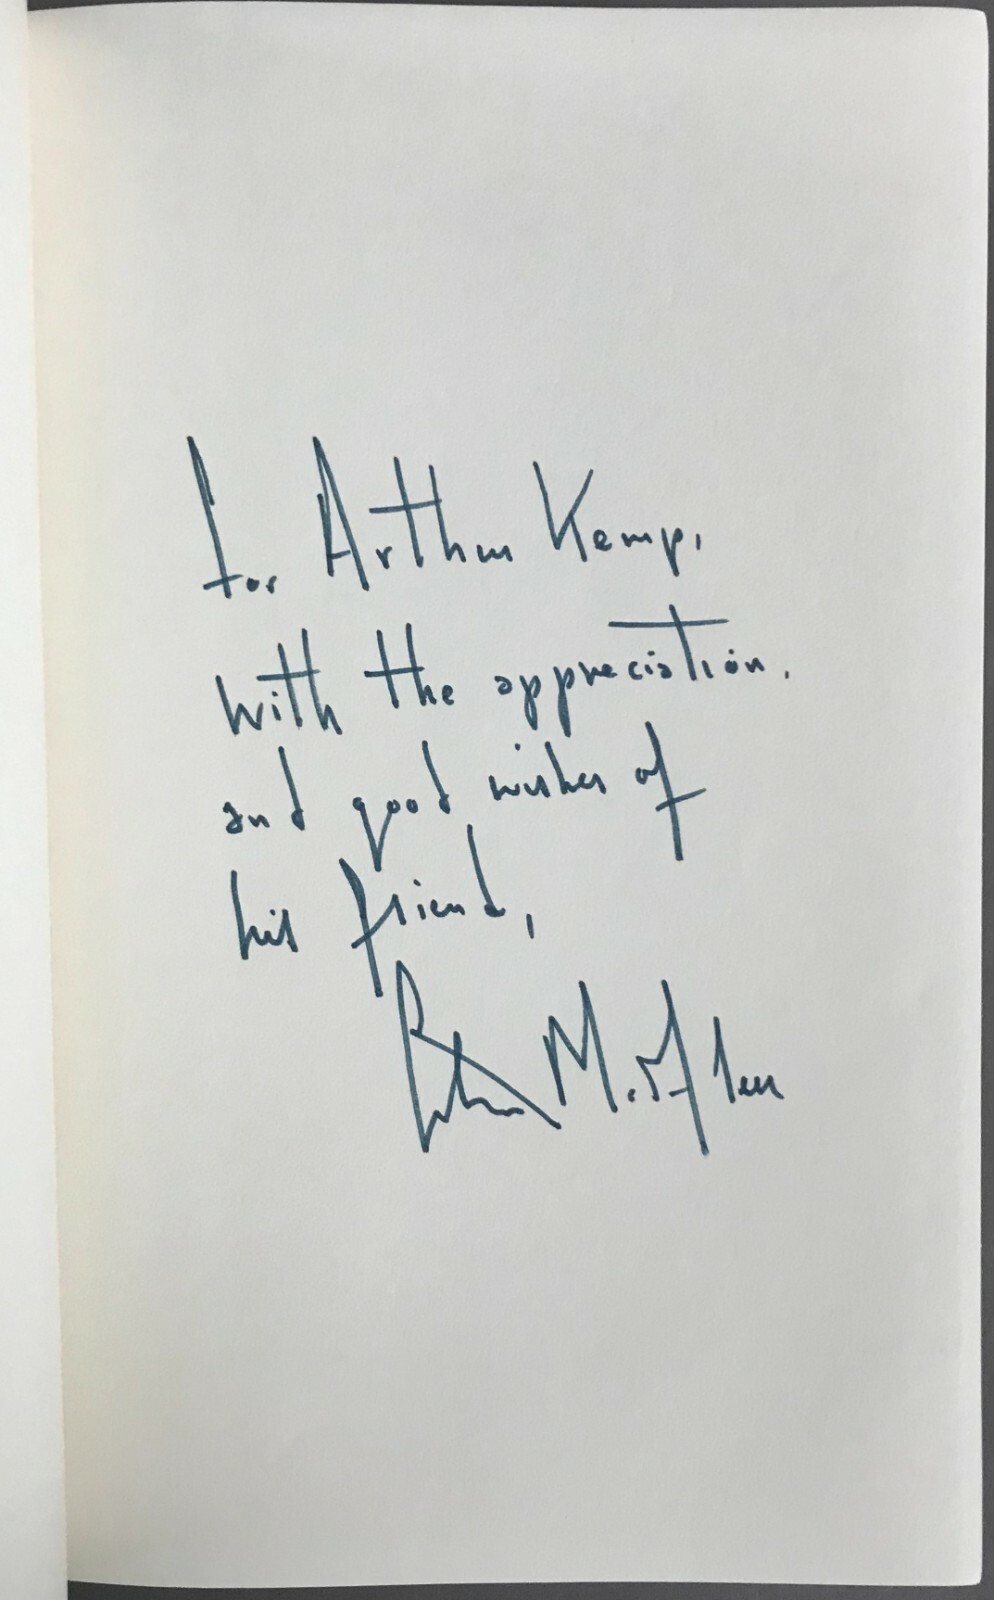 For Arthur Kemp,
with the appreciation,
and good wishes of
his friend,